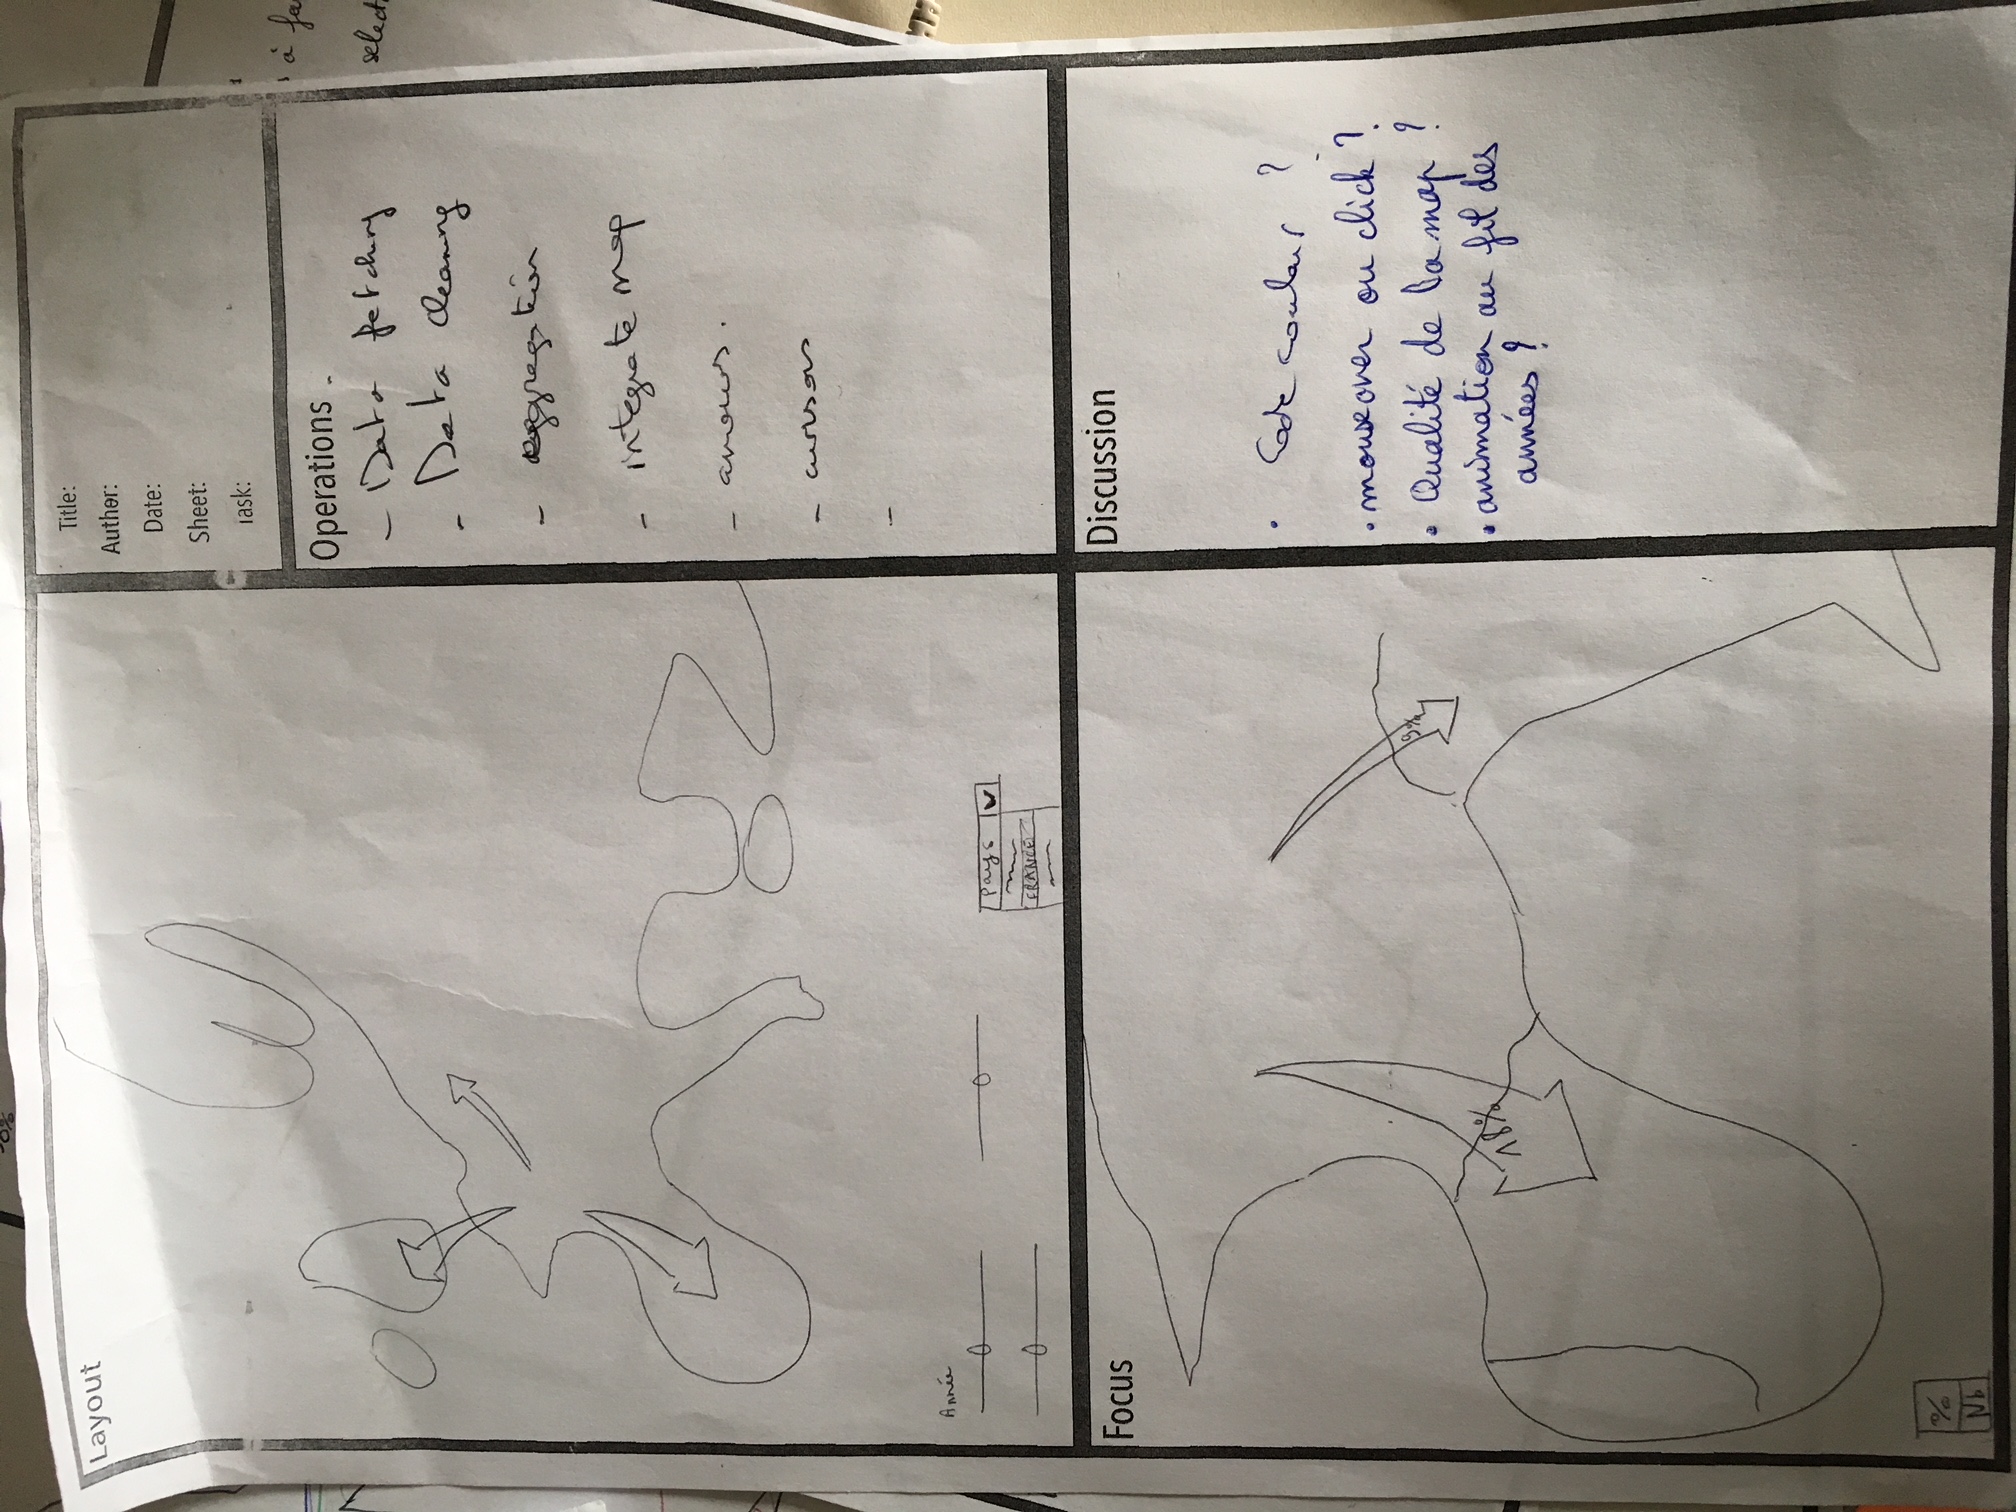 Layout
Année
Pays
FRANCE
Title:
Author:
Date:
Sheet:
Task:
Operations .
- Data fetching
- Data cleaning
- aggregation
- integrate map
-
- cursors
-
Focus
18%
9%
%
Nb
Discussion
• Code couleur ?
• mouseover ou click ?
• Qualité de la map ?
• animation au fil des
années ?
à
select